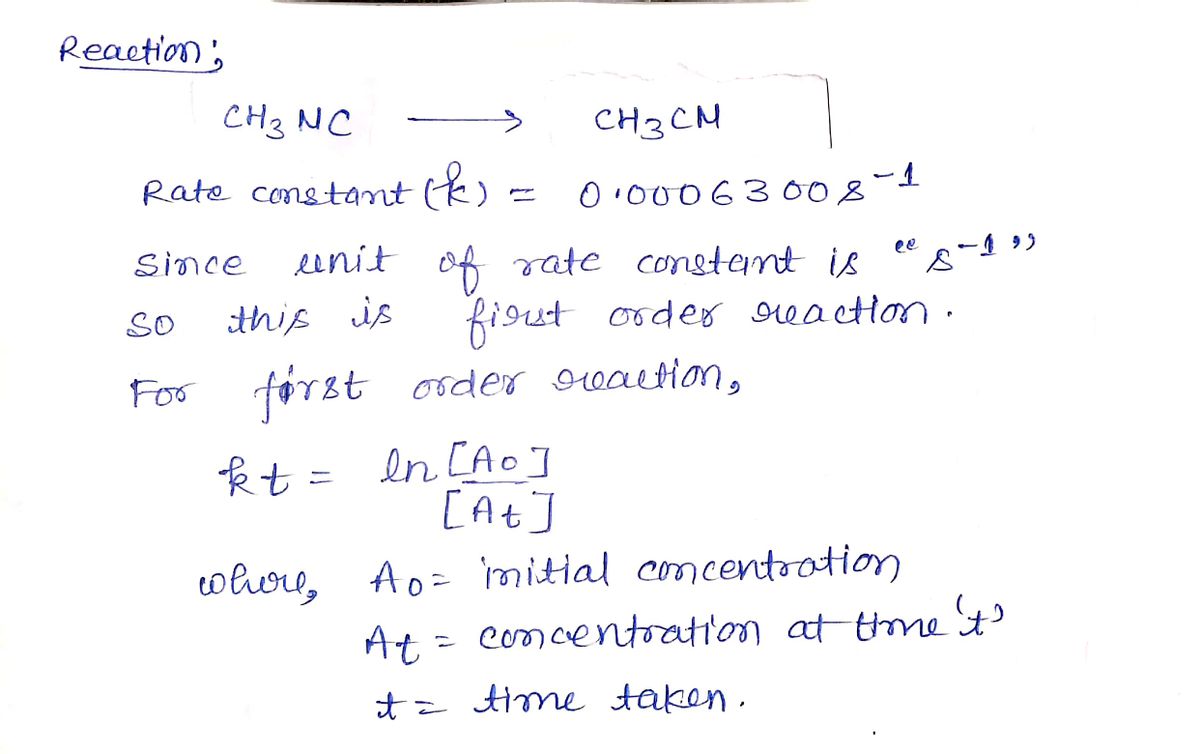 Reaction;
CH3 NC → CH3 CN
Rate constant (k) = 0.00063 00 s-1
Since unit of rate constant is "s-1"
so this is first order reaction.
For first order reaction,
kt = ln [A0]
[At]
where, A0 = initial concentration
At = concentration at time 't'
t = time taken.